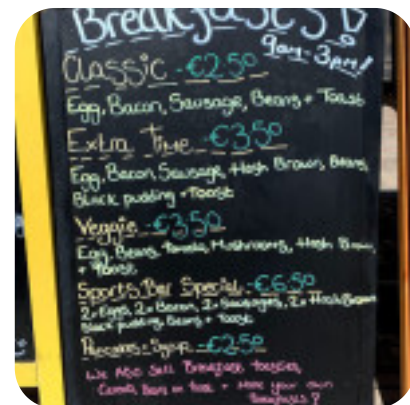 Breakfasts!
9am-3pm!
Classic - €2.50
Egg, Bacon, Sausage, Beans + Toast
Extra Time - €3.50
Egg, Bacon, Sausage, Hash Brown, Beans,
Black pudding + Toast
Veggie - €3.50
Egg, Beans, Tomato, Mushrooms, Hash Brown,
+ Toast
Sports Bar Special - €6.50
2x Eggs, 2x Bacon, 2x Sausages, 2x Hash Brown
Black pudding, Beans + Toast
Pancakes + Syrup - €2.50
We Also Sell Breakfast toasties,
Cereal, Beans on toast + Make your own
Breakfasts!